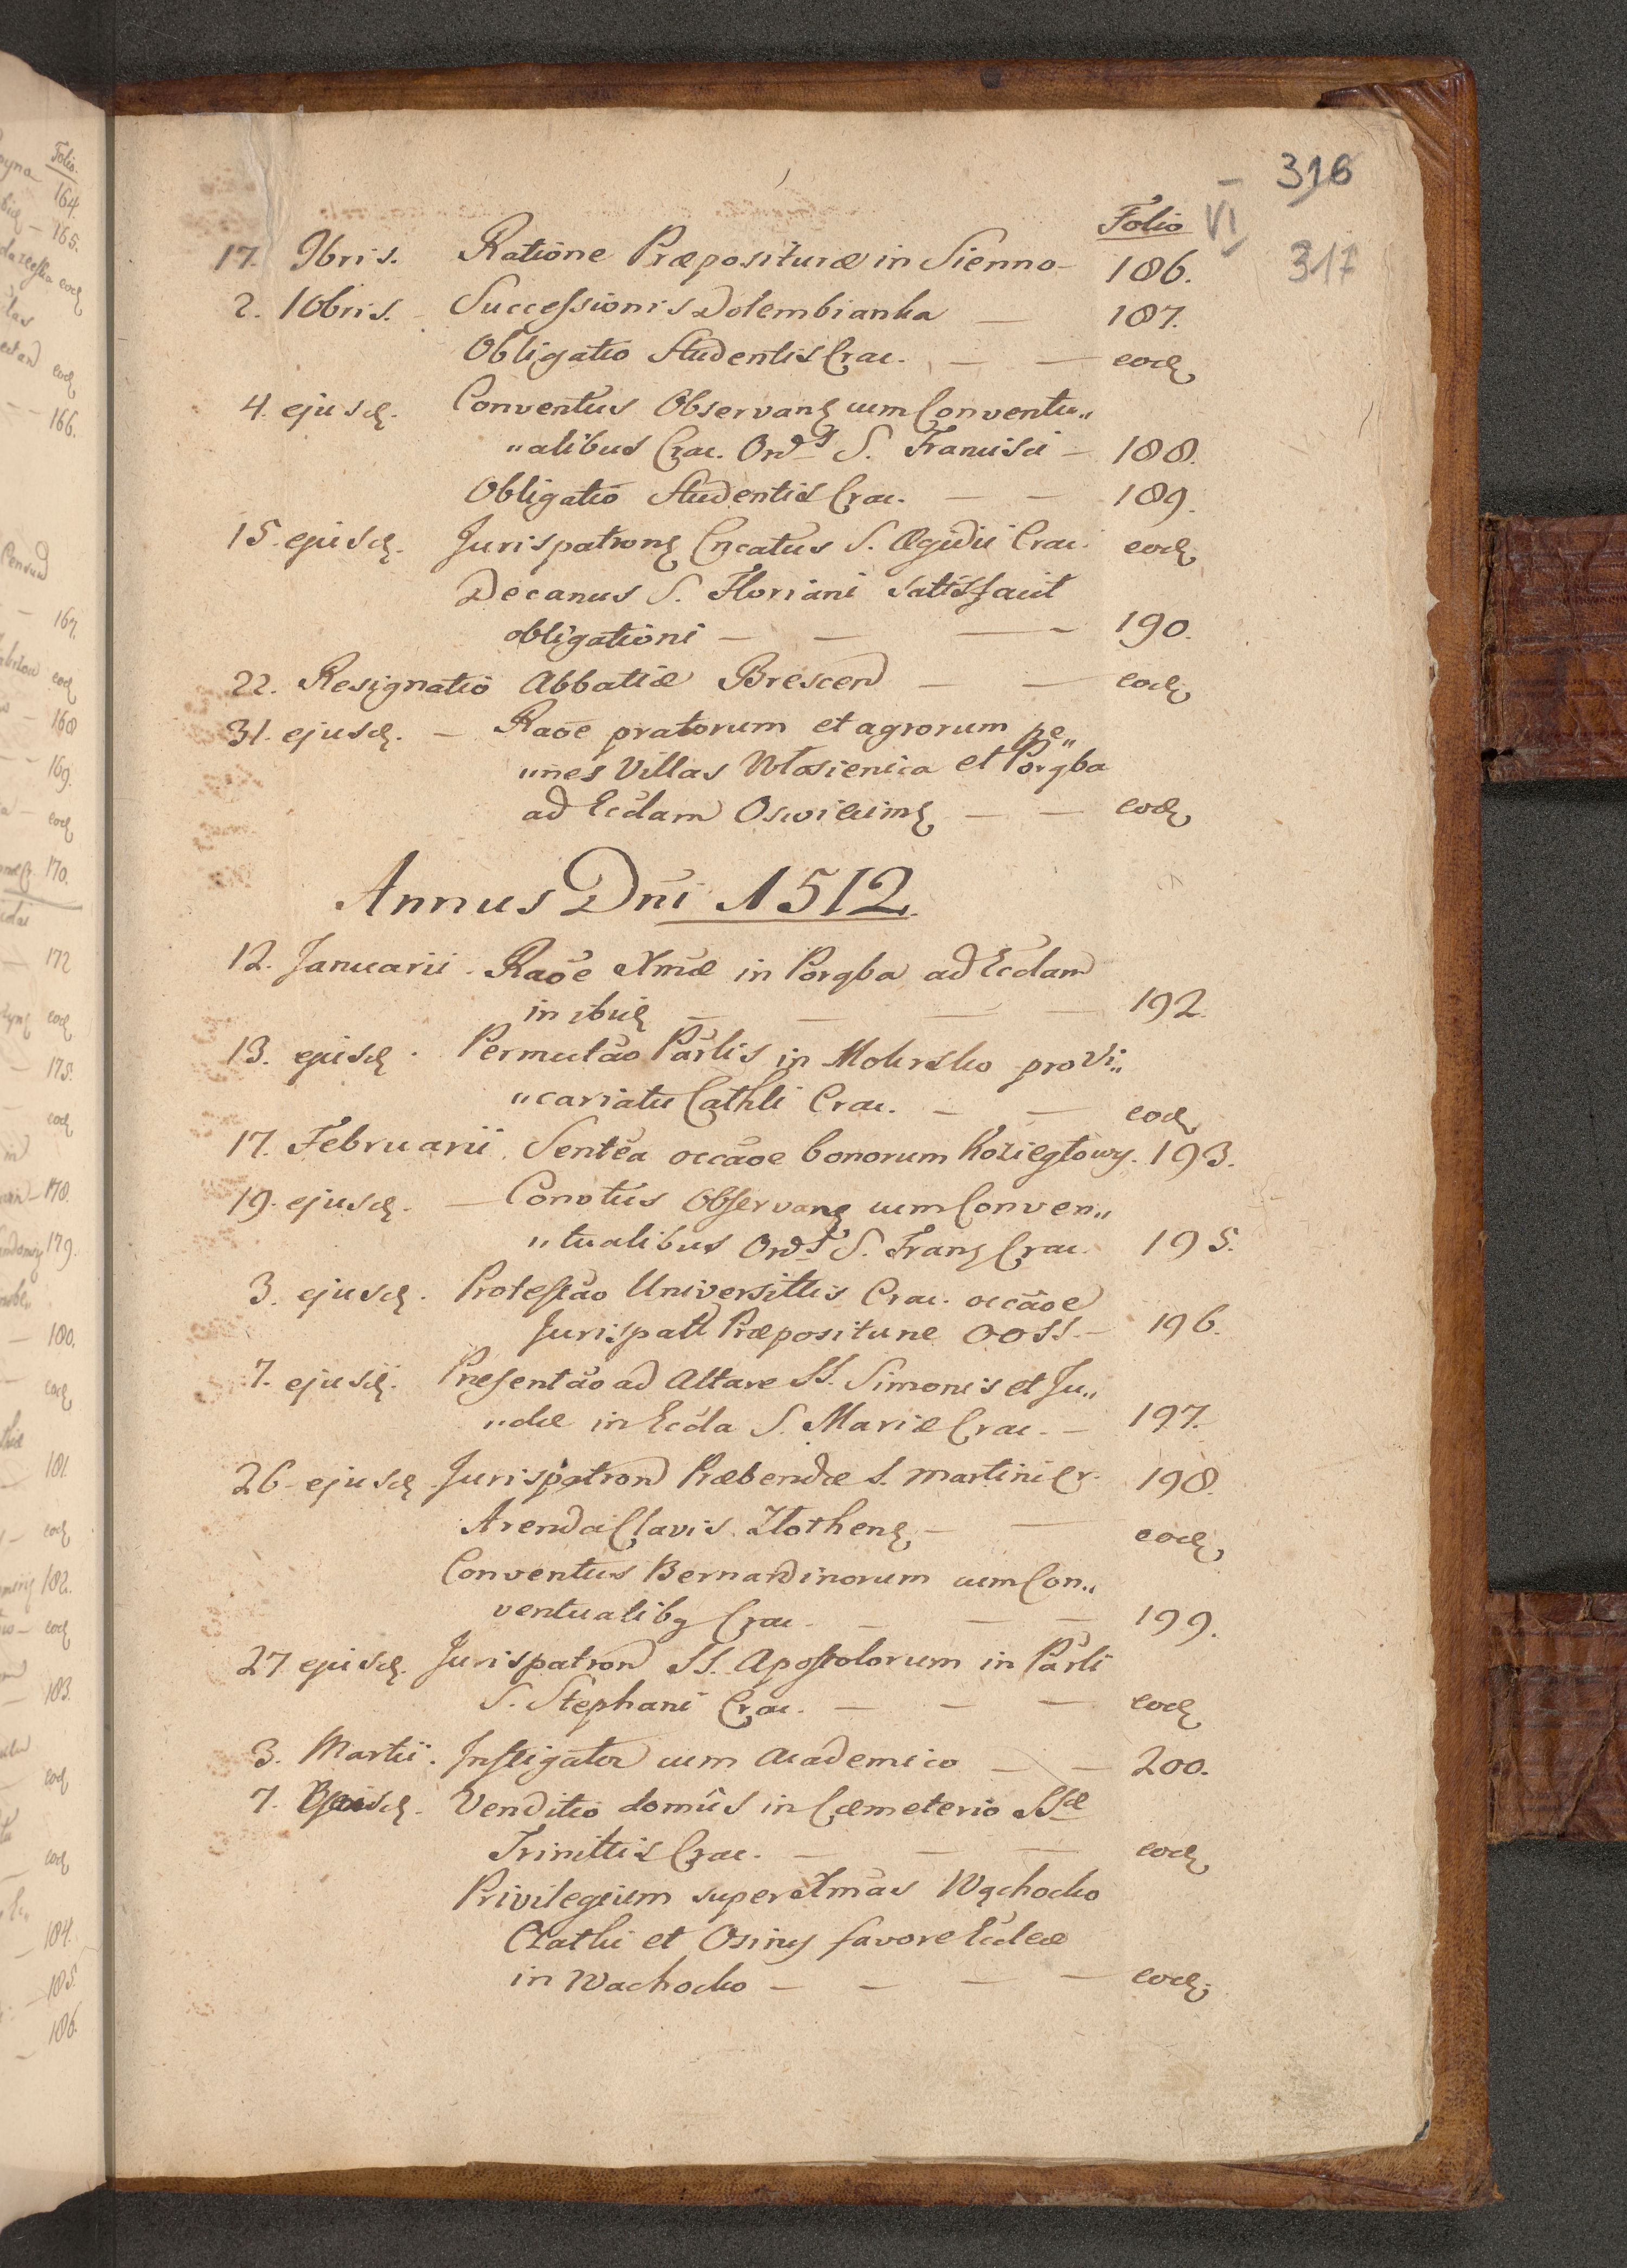 316
VI
317
Folio
17. 9bris. Ratione Præposituræ in Sienno – 186.
2. 10bris. – Successionis Dolembianka – 187.
Obligatio Studentis Crac. – – eodꝫ
4. ejusdꝫ. Conventus Observanꝫ cum Conventu„
„alibus Crac. Ordis S. Francisci – 188.
Obligatio Studentis Crac. – – 189.
15. ejusdꝫ. Jurispatronꝫ Cncatus S. Ægidii Crac. eodꝫ
Decanus S. Floriani satisfacit
obligationi – – – – 190.
22. Resignatio Abbatiæ Brescen – – eodꝫ
31. ejusdꝫ. – Raõe pratorum et agrorum pe„
„nes Villas Włosienica et Poręba
ad Eccl̃am Oswiecimꝫ – – eodꝫ
Annus Dñi 1512.
12. Januarii. Raõe Xmæ in Poręba ad Eccl̃am
in ibidꝫ – – – – 192.
13. ejusdꝫ. Permutão Parl̃is in Mokrsko pro Vi„
„cariatu Cathli Crac. – – eodꝫ
17. Februarii. Sentẽa occãoe bonorum Koziegłowy. 193.
19. ejusdꝫ. – Convtus Observanꝫ cum Conven„
„tualibus Ordis S. Franꝫ Crac. 195.
3. ejusdꝫ. Protestão Universittis Crac. occãoe
Jurispatt Præposituræ OOSS. – 196.
7. ejusdꝫ. Presentão ad Altare SS. Simonis et Ju„
„dæ in Eccl̃a S. Mariæ Crac. – 197.
26 – ejusdꝫ Jurispatron Præbendæ S. Martini Cr. 198.
Arenda Clavis Złothenꝫ – – eodꝫ
Conventus Bernardinorum cum Con„
ventualibꝫ Crac. – – – 199.
27 ejusdꝫ. Jurispatron SS. Apostolorum in Parl̃i
S. Stephani Crac. – – – eodꝫ
3. Martii. Instigator cum Academico – – 200.
7. Ejusdꝫ. Venditio domûs in Cæmeterio SSæ
Trinittis Crac. – – – eodꝫ
Privilegium super Xmas Wąchocko
Rathi et Osiny favore Eccl̃eæ
in Wachocko – – – – eodꝫ
Folio.
164.
165.
eodꝫ
eodꝫ
166.
167.
eodꝫ
168
169.
eodꝫ
170.
172
eodꝫ
175.
eodꝫ
178.
179.
180.
eodꝫ
181.
eodꝫ
182.
eodꝫ
183.
eodꝫ
eodꝫ
184.
185.
186.